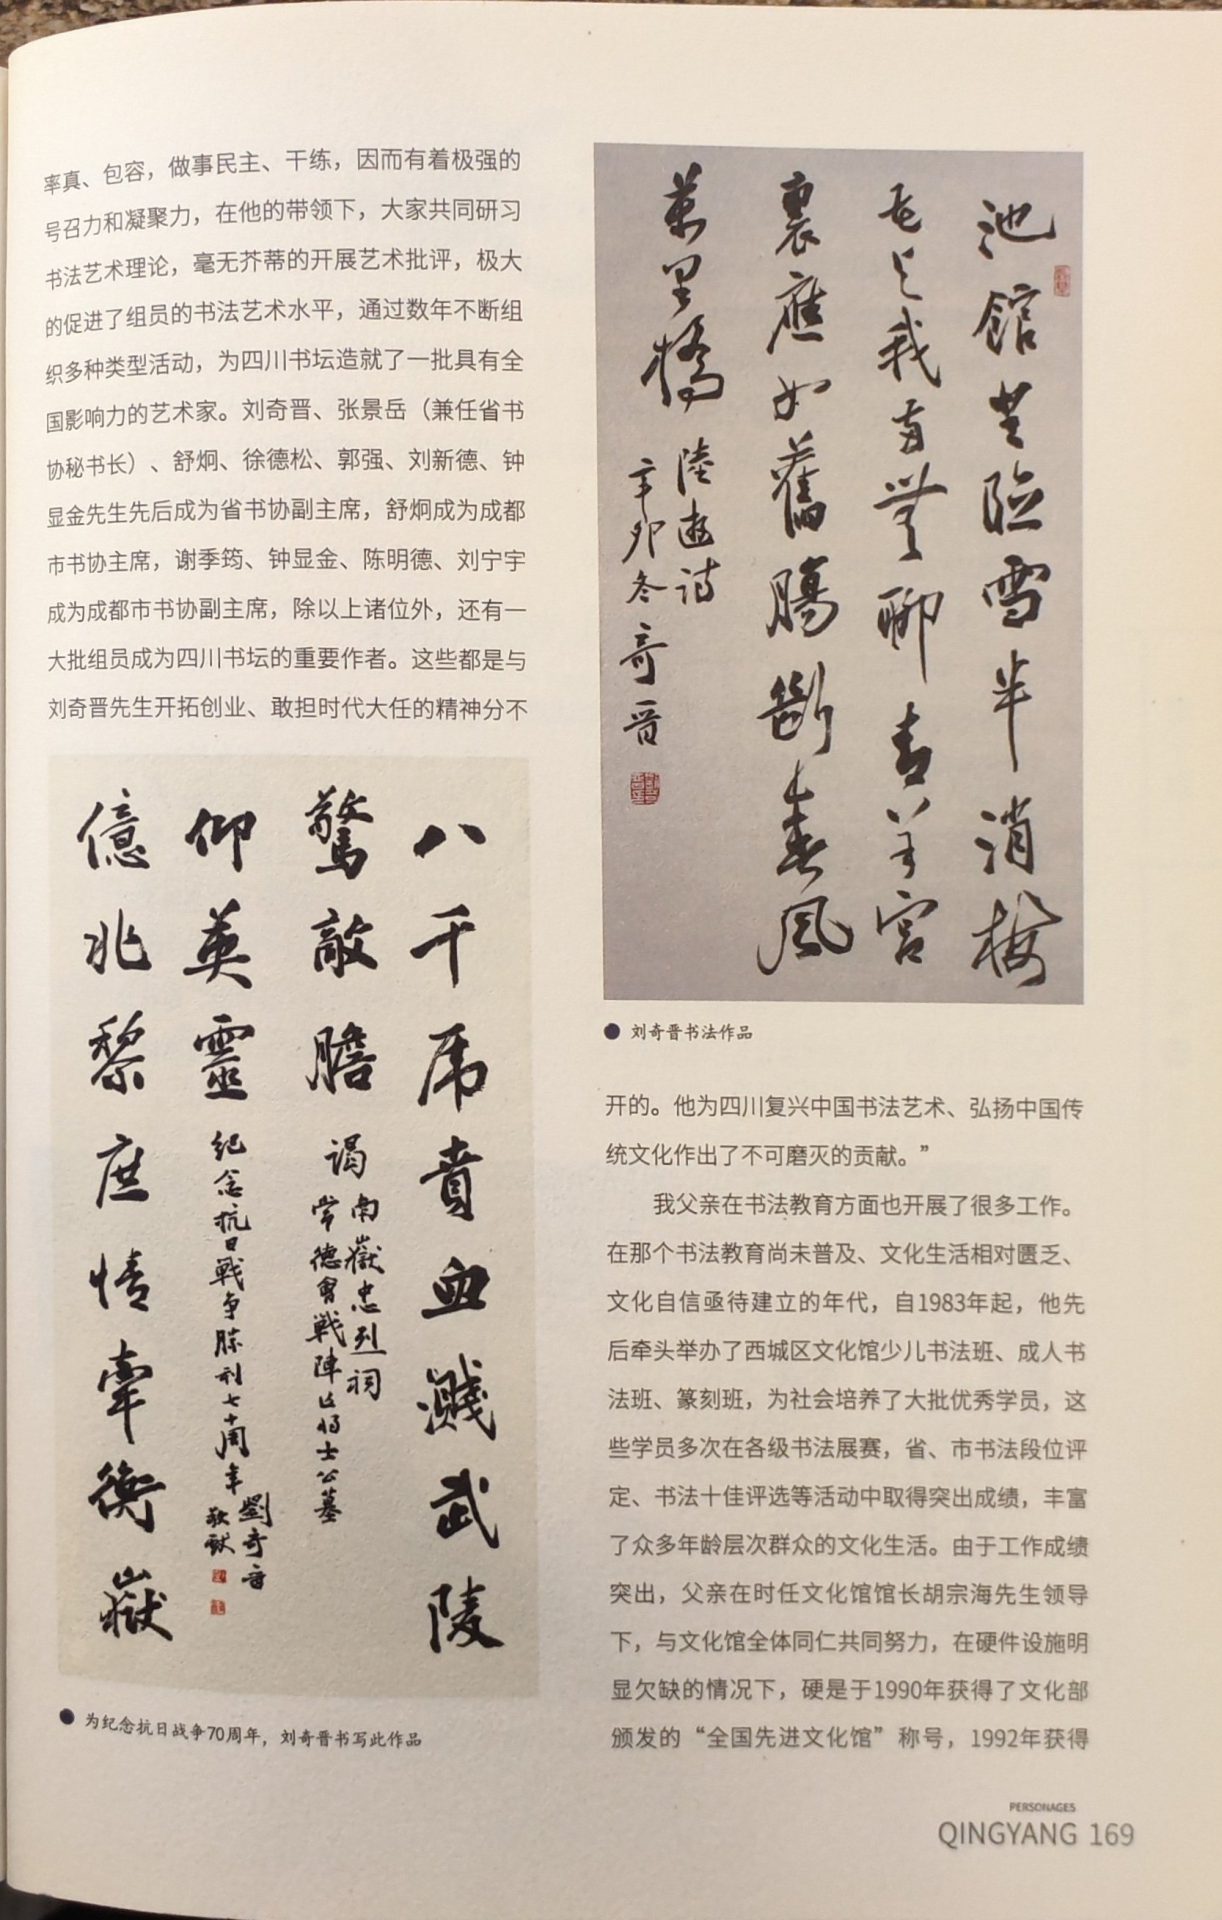 率真、包容，做事民主、干练，因而有着极强的
号召力和凝聚力，在他的带领下，大家共同研习
书法艺术理论，毫无芥蒂的开展艺术批评，极大
的促进了组员的书法艺术水平，通过数年不断组
织多种类型活动，为四川书坛造就了一批具有全
国影响力的艺术家。刘奇晋、张景岳（兼任省书
协秘书长）、舒炯、徐德松、郭强、刘新德、钟
显金先生先后成为省书协副主席，舒炯成为成都
市书协主席，谢季筠、钟显金、陈明德、刘宁宇
成为成都市书协副主席，除以上诸位外，还有一
大批组员成为四川书坛的重要作者。这些都是与
刘奇晋先生开拓创业、敢担时代大任的精神分不
八千虎賁血濺武陵
驚敵膽
謁
南嶽忠烈祠
常德會戰陣亡将士公墓
仰英靈
紀念抗日戰争勝利七十周年
劉奇晋
敬献
億兆黎庶情牽衡嶽
为纪念抗日战争70周年，刘奇晋书写此作品
池館登临雪半消梅
花与我两無聊青羊宮
裏應如舊腸斷春風
萬里橋
陸遊詩
辛卯冬 奇晋
刘奇晋书法作品
开的。他为四川复兴中国书法艺术、弘扬中国传
统文化作出了不可磨灭的贡献。”
我父亲在书法教育方面也开展了很多工作。
在那个书法教育尚未普及、文化生活相对匮乏、
文化自信亟待建立的年代，自1983年起，他先
后牵头举办了西城区文化馆少儿书法班、成人书
法班、篆刻班，为社会培养了大批优秀学员，这
些学员多次在各级书法展赛，省、市书法段位评
定、书法十佳评选等活动中取得突出成绩，丰富
了众多年龄层次群众的文化生活。由于工作成绩
突出，父亲在时任文化馆馆长胡宗海先生领导
下，与文化馆全体同仁共同努力，在硬件设施明
显欠缺的情况下，硬是于1990年获得了文化部
颁发的“全国先进文化馆”称号，1992年获得
PERSONAGES
QINGYANG 169